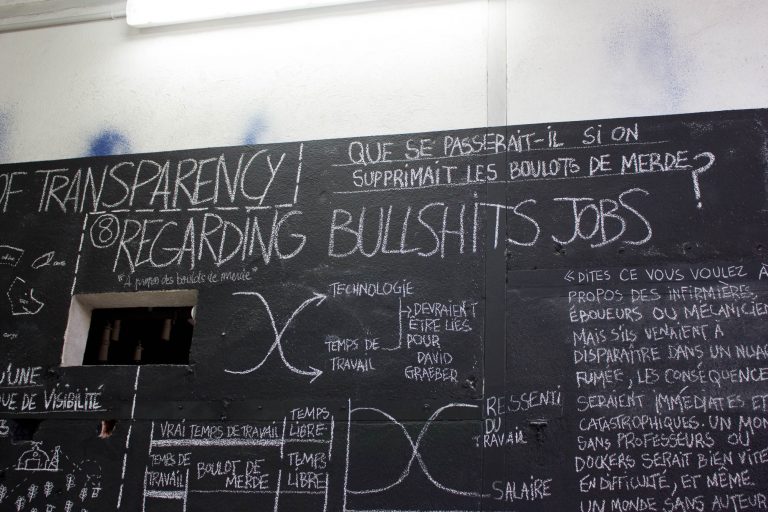 OF TRANSPARENCY
QUE SE PASSERAIT-IL SI ON
SUPPRIMAIT LES BOULOTS DE MERDE ?
⑧ REGARDING BULLSHITS JOBS
"à propos des boulots de merde"
TECHNOLOGIE
DEVRAIENT
ÊTRE LIÉS
POUR
DAVID
GRAEBER
TEMPS DE
TRAVAIL
D'UNE
DE VISIBILITÉ
VRAI TEMPS DE TRAVAIL
TEMPS
LIBRE
TEMPS DE
TRAVAIL
BOULOT DE
MERDE
TEMPS
LIBRE
RESSENTI
DU
TRAVAIL
SALAIRE
« DITES CE VOUS VOULEZ À
PROPOS DES INFIRMIÈRES
ÉBOUEURS OU MÉCANICIEN
MAIS S'ILS VENAIENT À
DISPARAÎTRE DANS UN NUAG
FUMÉE, LES CONSÉQUENCE
SERAIENT IMMÉDIATES ET
CATASTROPHIQUES. UN MON
SANS PROFESSEURS OU
DOCKERS SERAIT BIEN VITE
EN DIFFICULTÉ, ET MÊME
UN MONDE SANS AUTEUR